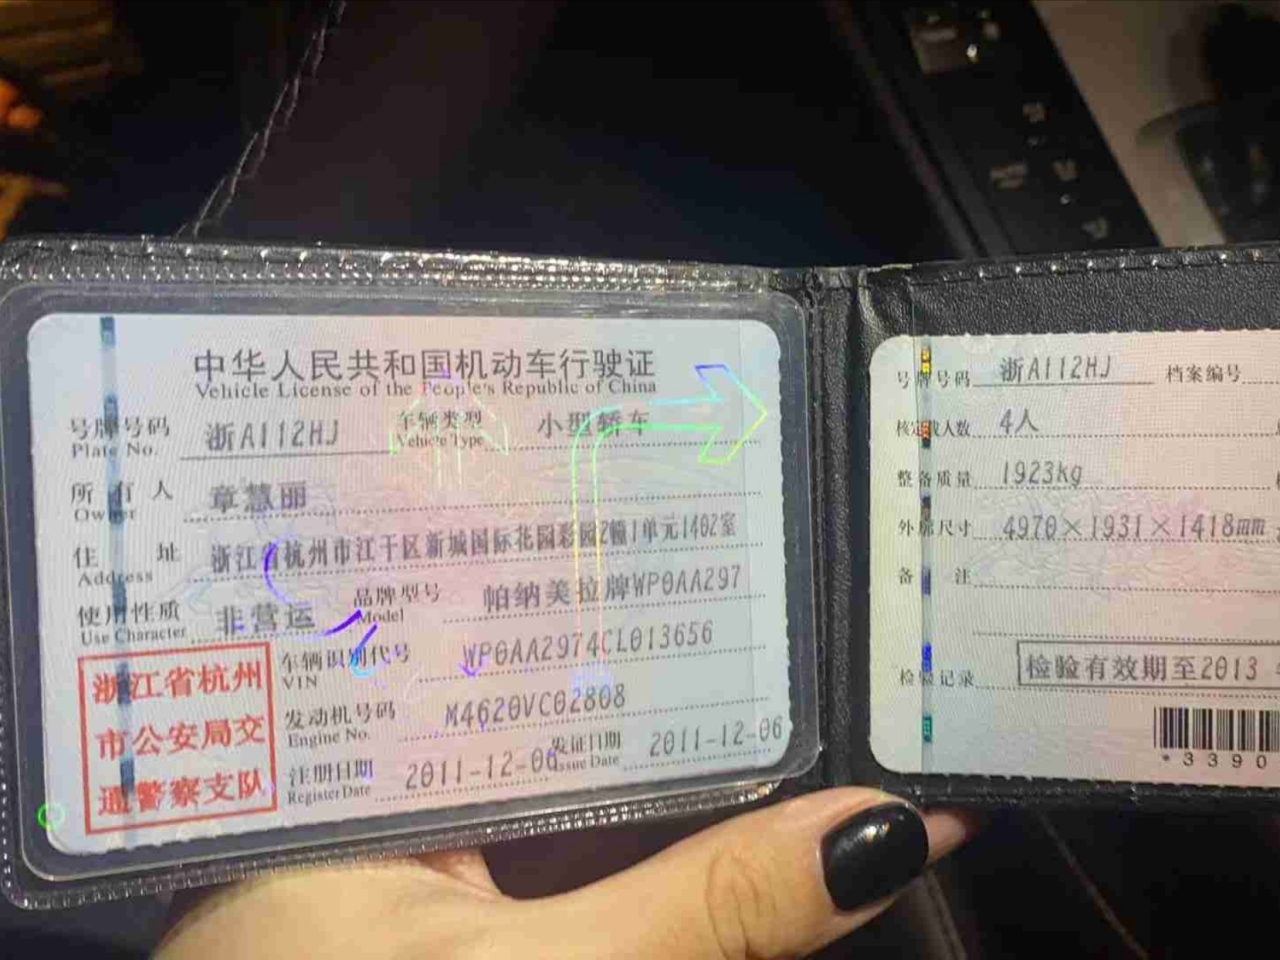 中华人民共和国机动车行驶证
Vehicle License of the People's Republic of China
号牌号码 浙A112HJ 车辆类型 小型轿车
Plate No. Vehicle Type
所有人 章慧丽
Owner
住址 浙江省杭州市江干区新城国际花园彩园2幢1单元1402室
Address
使用性质 非营运 品牌型号 帕纳美拉牌WP0AA297
Use Character Model
车辆识别代号 WP0AA2974CL013656
VIN
发动机号码 M4620VC02808
Engine No.
注册日期 2011-12-06 发证日期 2011-12-06
Register Date Issue Date
浙江省杭州
市公安局交
通警察支队
号牌号码 浙A112HJ 档案编号
核定载人数 4人
整备质量 1923kg
外廓尺寸 4970×1931×1418mm
备注
检验记录 检验有效期至2013
*3390